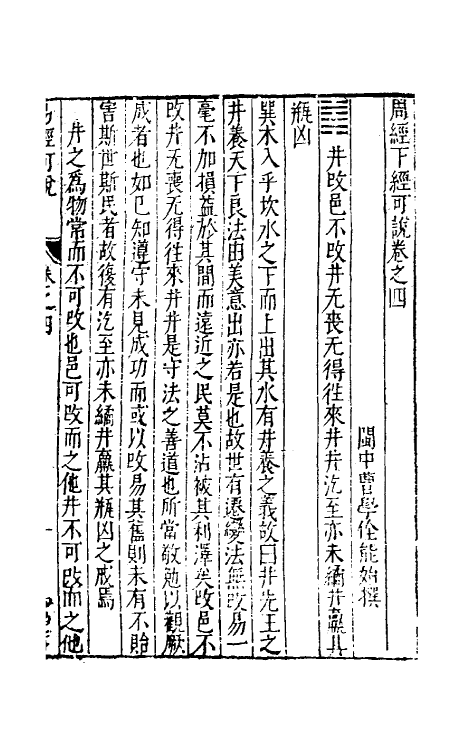 周經下經可說卷之四
閩中曹學佺能始撰
䷯井改邑不改井无喪无得徃來井井汔至亦未繘井羸其
瓶凶
巽木入乎坎水之下而上出其水有井養之義故曰井先王之
井養天下良法由美意出亦若是也故世有遷變法無改易一
毫不加損益於其間而遠近之民莫不沾被其利澤矣改邑不
改井无喪无得徃來井井是守法之善道也所當敬勉以觀厥
成者也如已知遵守未見成功而或以改易其舊則未有不貽
害斯世斯民者故復有汔至亦未繘井羸其瓶凶之戒焉
井之爲物常而不可改也邑可改而之他井不可改而之他
易經可說
卷之四
一